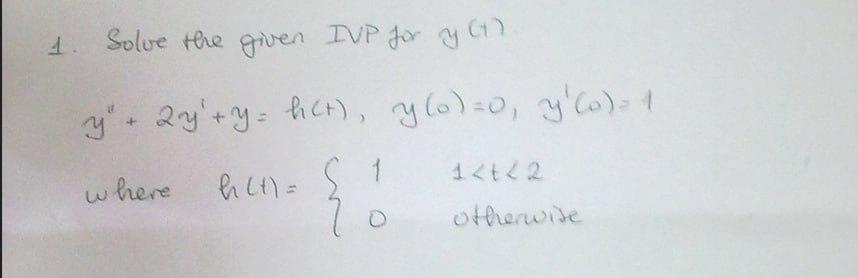 1. Solve the given IVP for y(t)
y" + 2y' + y = h(t), y(0)=0, y'(0)=1
where h(t) = { 1 1<t<2
0 otherwise